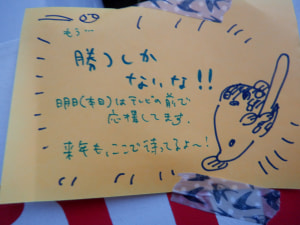 もう…
勝つしか
ないな!!
明日(本日)はテレビの前で
応援してます。
来年も、ここで待ってるよ〜!